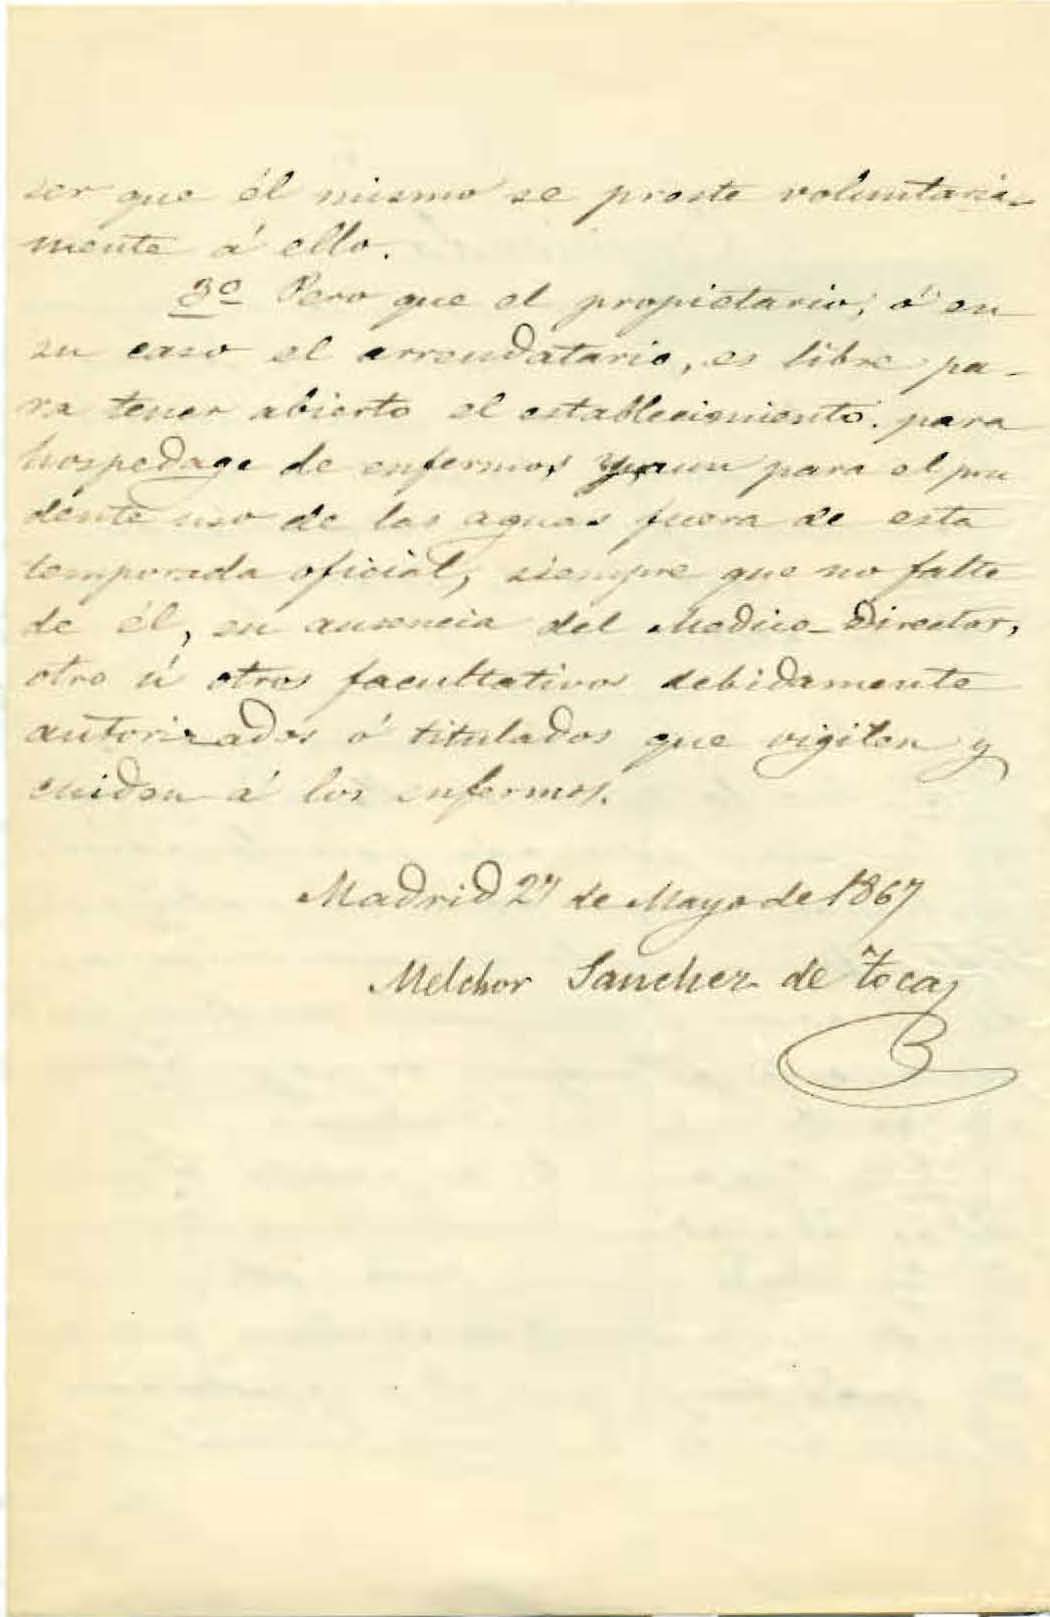 ser que él mismo se preste voluntaria-
mente á ello.
3º Pero que el propietario, ó en
su caso el arrendatario, es libre pa-
ra tener abierto el establecimiento para
hospedage de enfermos, y aun para el pru
dente uso de las aguas fuera de esta
temporada oficial, siempre que no falte
de él, en ausencia del Medico-Director,
otro ú otros facultativos debidamente
autorizados ó titulados que vigilen y
cuiden á los enfermos.
Madrid 27 de Mayo de 1867
Melchor Sanchez de Toca